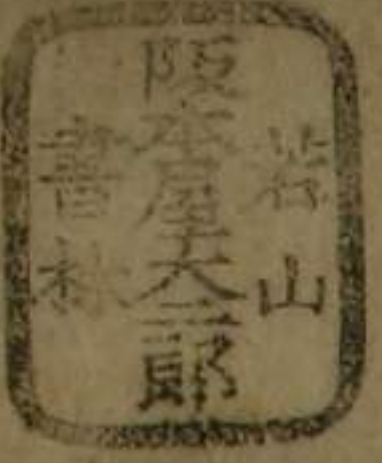 若山
阪本屋大二郎
書林